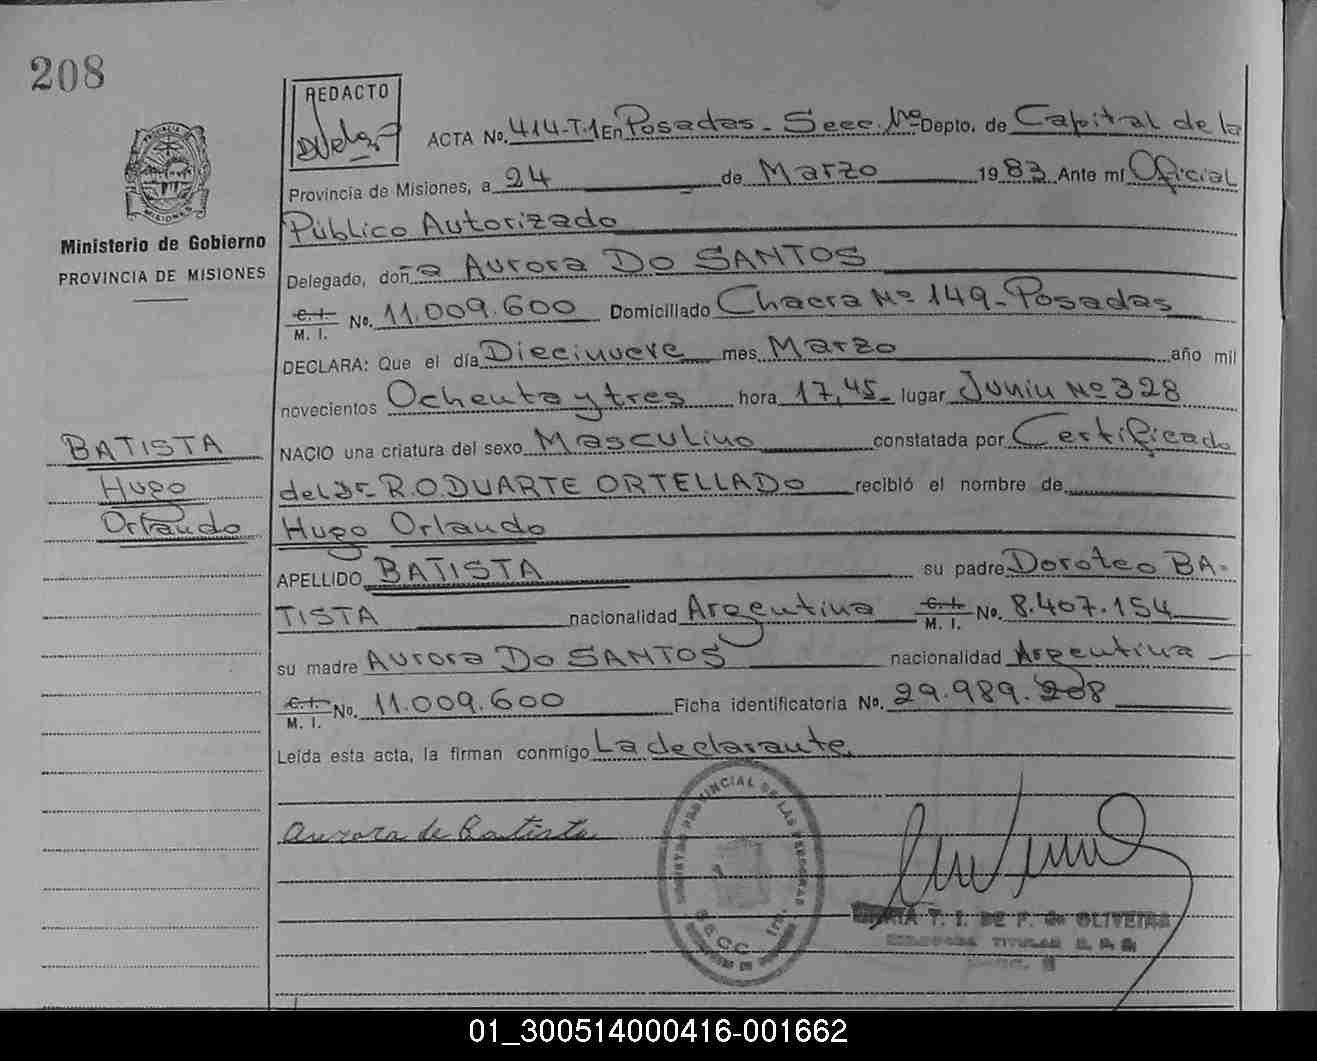 208
REDACTO
ACTA No. 414-T-1 En Posadas - Secc. 1ra Depto. de Capital de la
Provincia de Misiones, a 24 de Marzo 1983 Ante mí Oficial
Público Autorizado
Ministerio de Gobierno
PROVINCIA DE MISIONES
Delegado, doña Aurora Do SANTOS
C.I. M. I. No. 11.009.600 Domiciliado Chacra Nº 149-Posadas
DECLARA: Que el día Diecinueve mes Marzo año mil
novecientos Ochenta y tres hora 17,45 lugar Junin Nº 328
NACIO una criatura del sexo Masculino constatada por Certificado
del Dr. R.O DUARTE ORTELLADO recibió el nombre de
Hugo Orlando
BATISTA
Hugo
Orlando
APELLIDO BATISTA su padre Doroteo BA-
TISTA nacionalidad Argentina C.I. M. I. No. 8.407.154
su madre Aurora Do SANTOS nacionalidad Argentina
C.I. M. I. No. 11.009.600 Ficha identificatoria No. 29.989.208
Leída esta acta, la firman conmigo La declarante.
Aurora de Batista
REGISTRO PROVINCIAL DE LAS PERSONAS
T. I. DE F. de OLIVEIRA
TITULAR
01_300514000416-001662